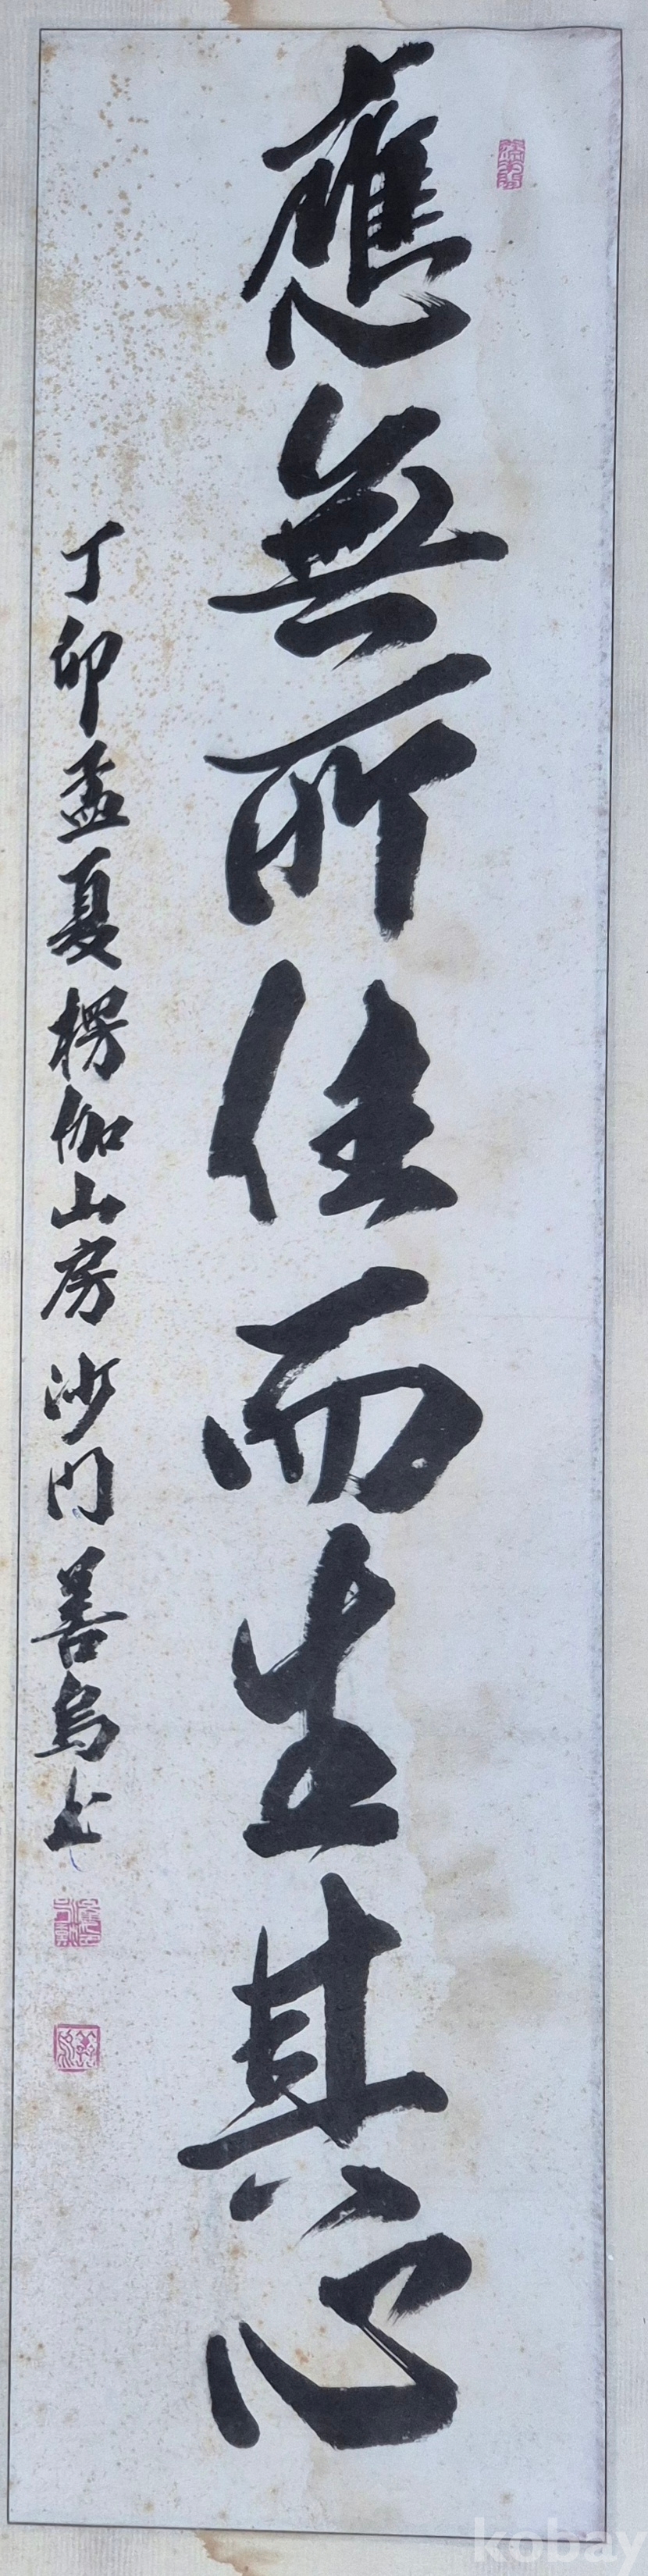 應無所住而生其心
丁卯孟夏楞伽山房沙門善烏
kobay